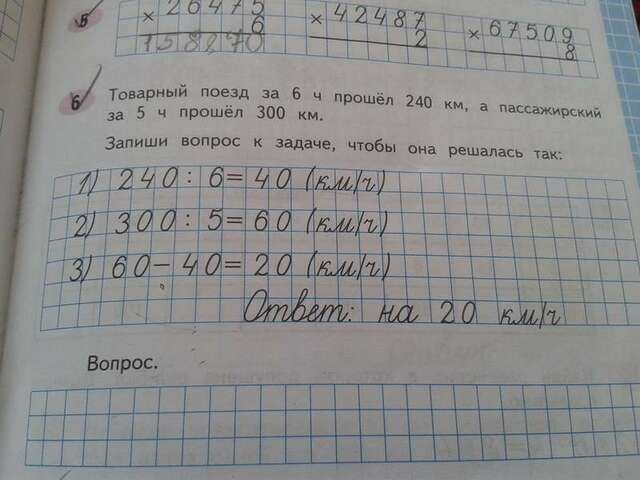 5 × 26475 × 42487 × 67509
6 2 8
158870
6 Товарный поезд за 6 ч прошёл 240 км, а пассажирский
за 5 ч прошёл 300 км.
Запиши вопрос к задаче, чтобы она решалась так:
1) 240 : 6 = 40 (км/ч)
2) 300 : 5 = 60 (км/ч)
3) 60 − 40 = 20 (км/ч)
Ответ: на 20 км/ч
Вопрос.